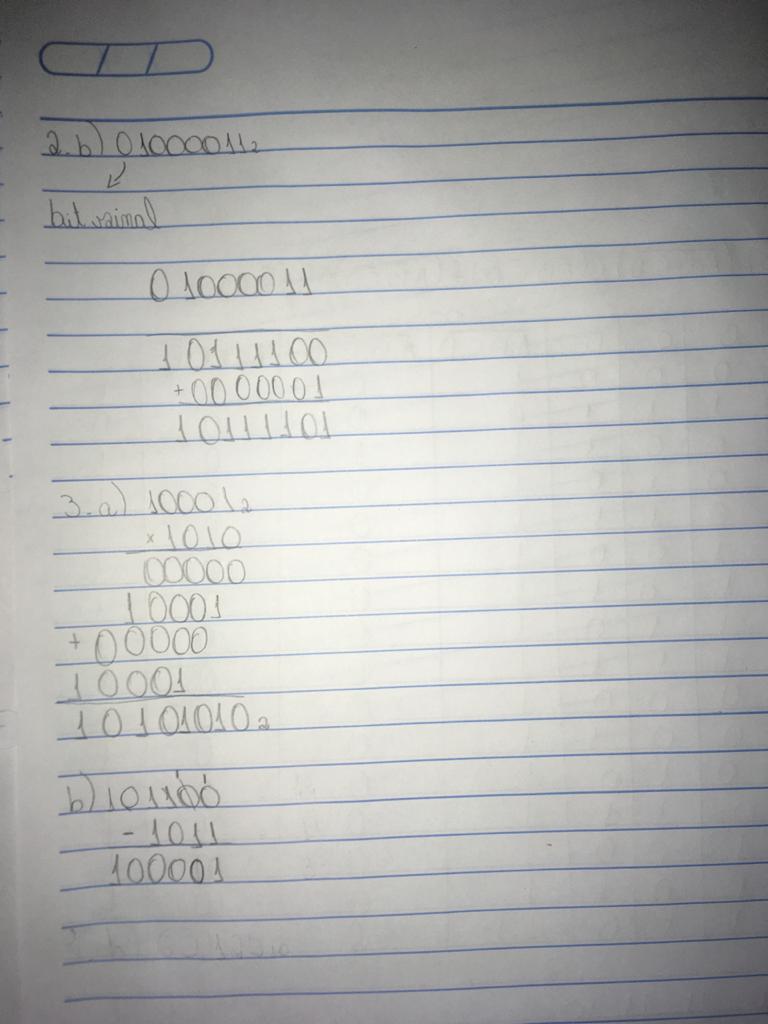 2.b) 01000011₂
bit
01000011
10111100
+0000001
10111101
3.a) 10001₂
x1010
00000
10001
+00000
10001
10101010₂
b) 101100
- 1011
100001